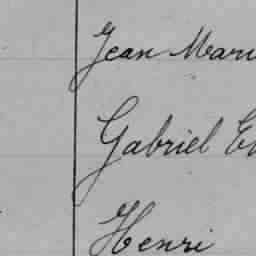 Jean Mari
Gabriel E
Henri